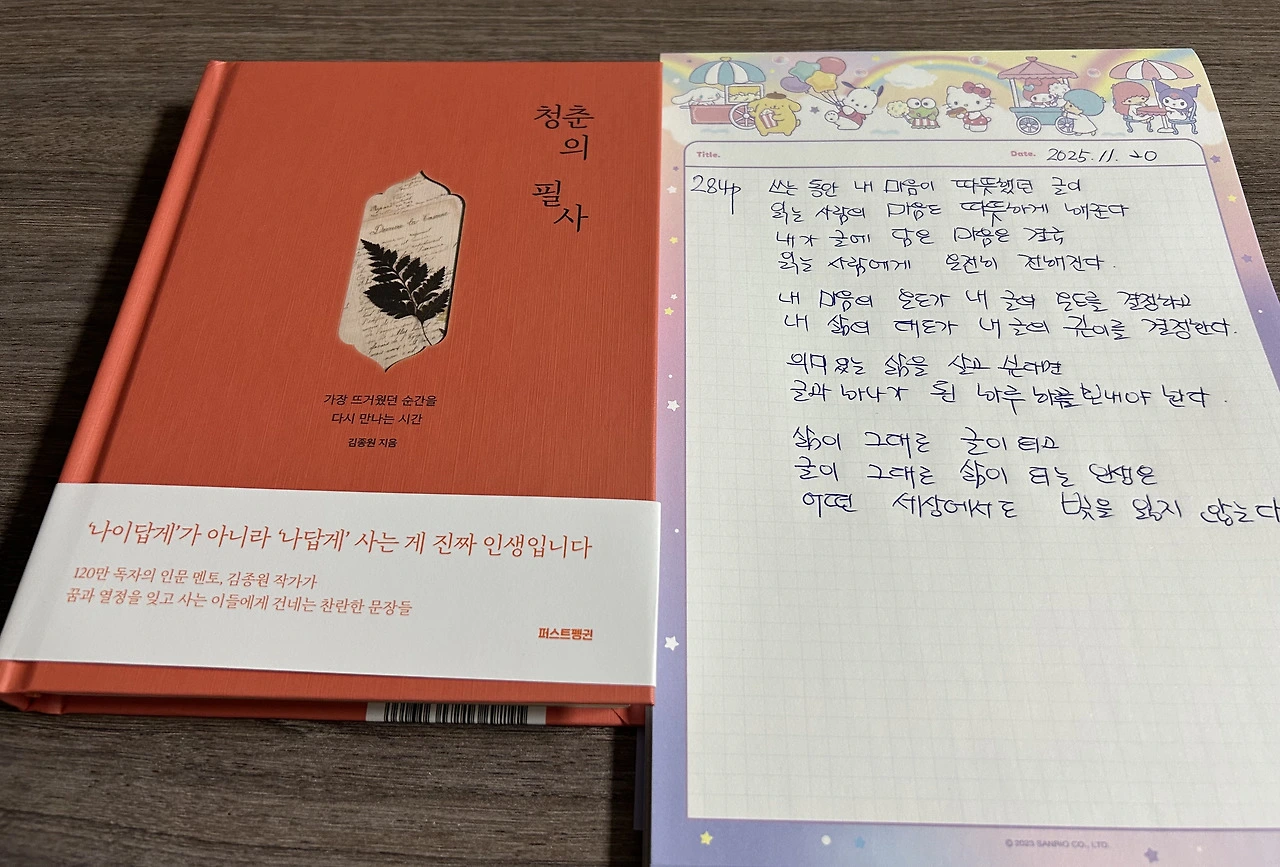 청춘
의
필
사
가장 뜨거웠던 순간을
다시 만나는 시간
김종원 지음
‘나이답게’가 아니라 ‘나답게’ 사는 게 진짜 인생입니다
120만 독자의 인문 멘토, 김종원 작가가
꿈과 열정을 잊고 사는 이들에게 건네는 찬란한 문장들
퍼스트펭귄
Title.
Date. 2025. 11. 20
284p 쓰는 동안 내 마음이 따뜻했던 글이
읽는 사람의 마음도 따뜻하게 해준다
내가 글에 담은 마음은 결국
읽는 사람에게 온전히 전해진다.
내 마음의 온도가 내 글의 온도를 결정하고
내 삶의 태도가 내 글의 깊이를 결정한다.
의미 있는 삶을 살고 싶다면
글과 하나가 된 하루 하루를 보내야 한다.
삶이 그대로 글이 되고
글이 그대로 삶이 되는 인생은
어떤 세상에서도 빛을 잃지 않는다
© 2023 SANRIO CO., LTD.